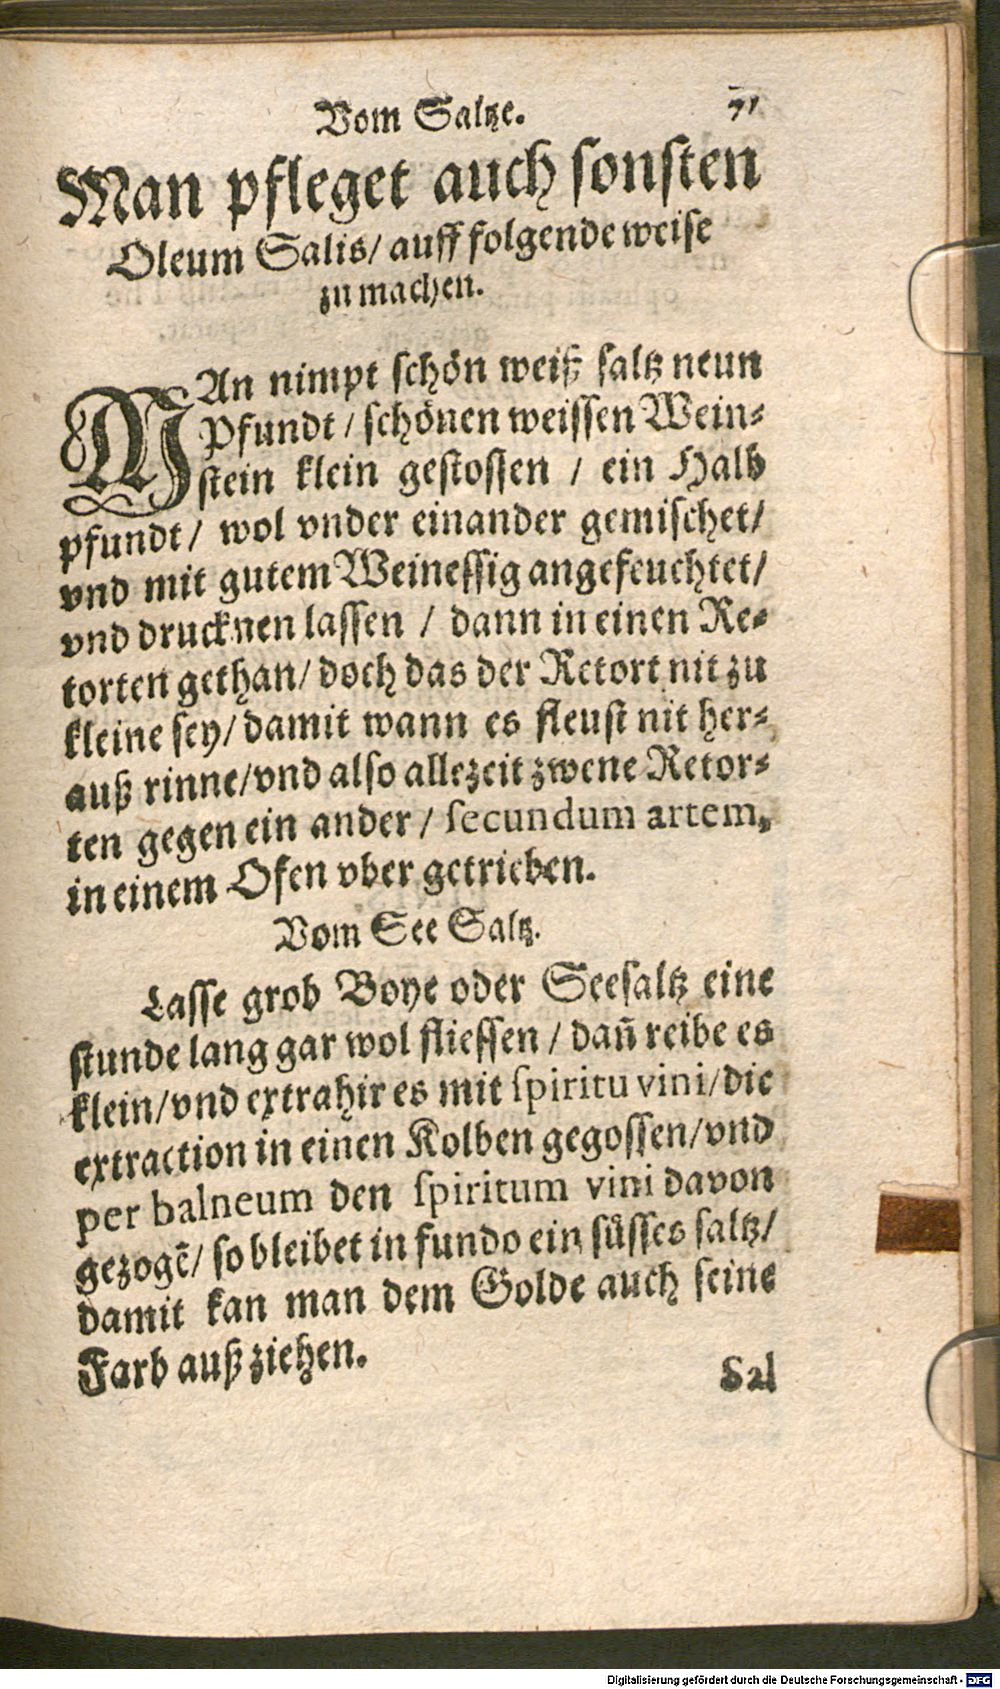 Vom Saltze. 71
Man pfleget auch ſonſten
Oleum Salis/ auff folgende weiſe
zu machen.
MAn nimpt ſchön weiß ſaltz neun
Pfundt / ſchönen weiſſen Wein-
ſtein klein geſtoſſen / ein Halb
pfundt/ wol vnder einander gemiſchet/
vnd mit gutem Weineſſig angefeuchtet/
vnd drucknen laſſen / dann in einen Re-
torten gethan/ doch das der Retort nit zu
kleine ſey/ damit wann es fleuſt nit her-
auß rinne/vnd alſo allezeit zwene Retor-
ten gegen ein ander / ſecundum artem,
in einem Ofen vber getrieben.
Vom See Saltz.
Laſſe grob Boye oder Seeſaltz eine
ſtunde lang gar wol flieſſen / dañ reibe es
klein/vnd extrahir es mit ſpiritu vini/die
extraction in einen Kolben gegoſſen/vnd
per balneum den ſpiritum vini davon
gezogē/ ſo bleibet in fundo ein ſuͤſſes ſaltz/
damit kan man dem Golde auch ſeine
Farb auß ziehen.
Sal
Digitalisierung gefördert durch die Deutsche Forschungsgemeinschaft - DFG